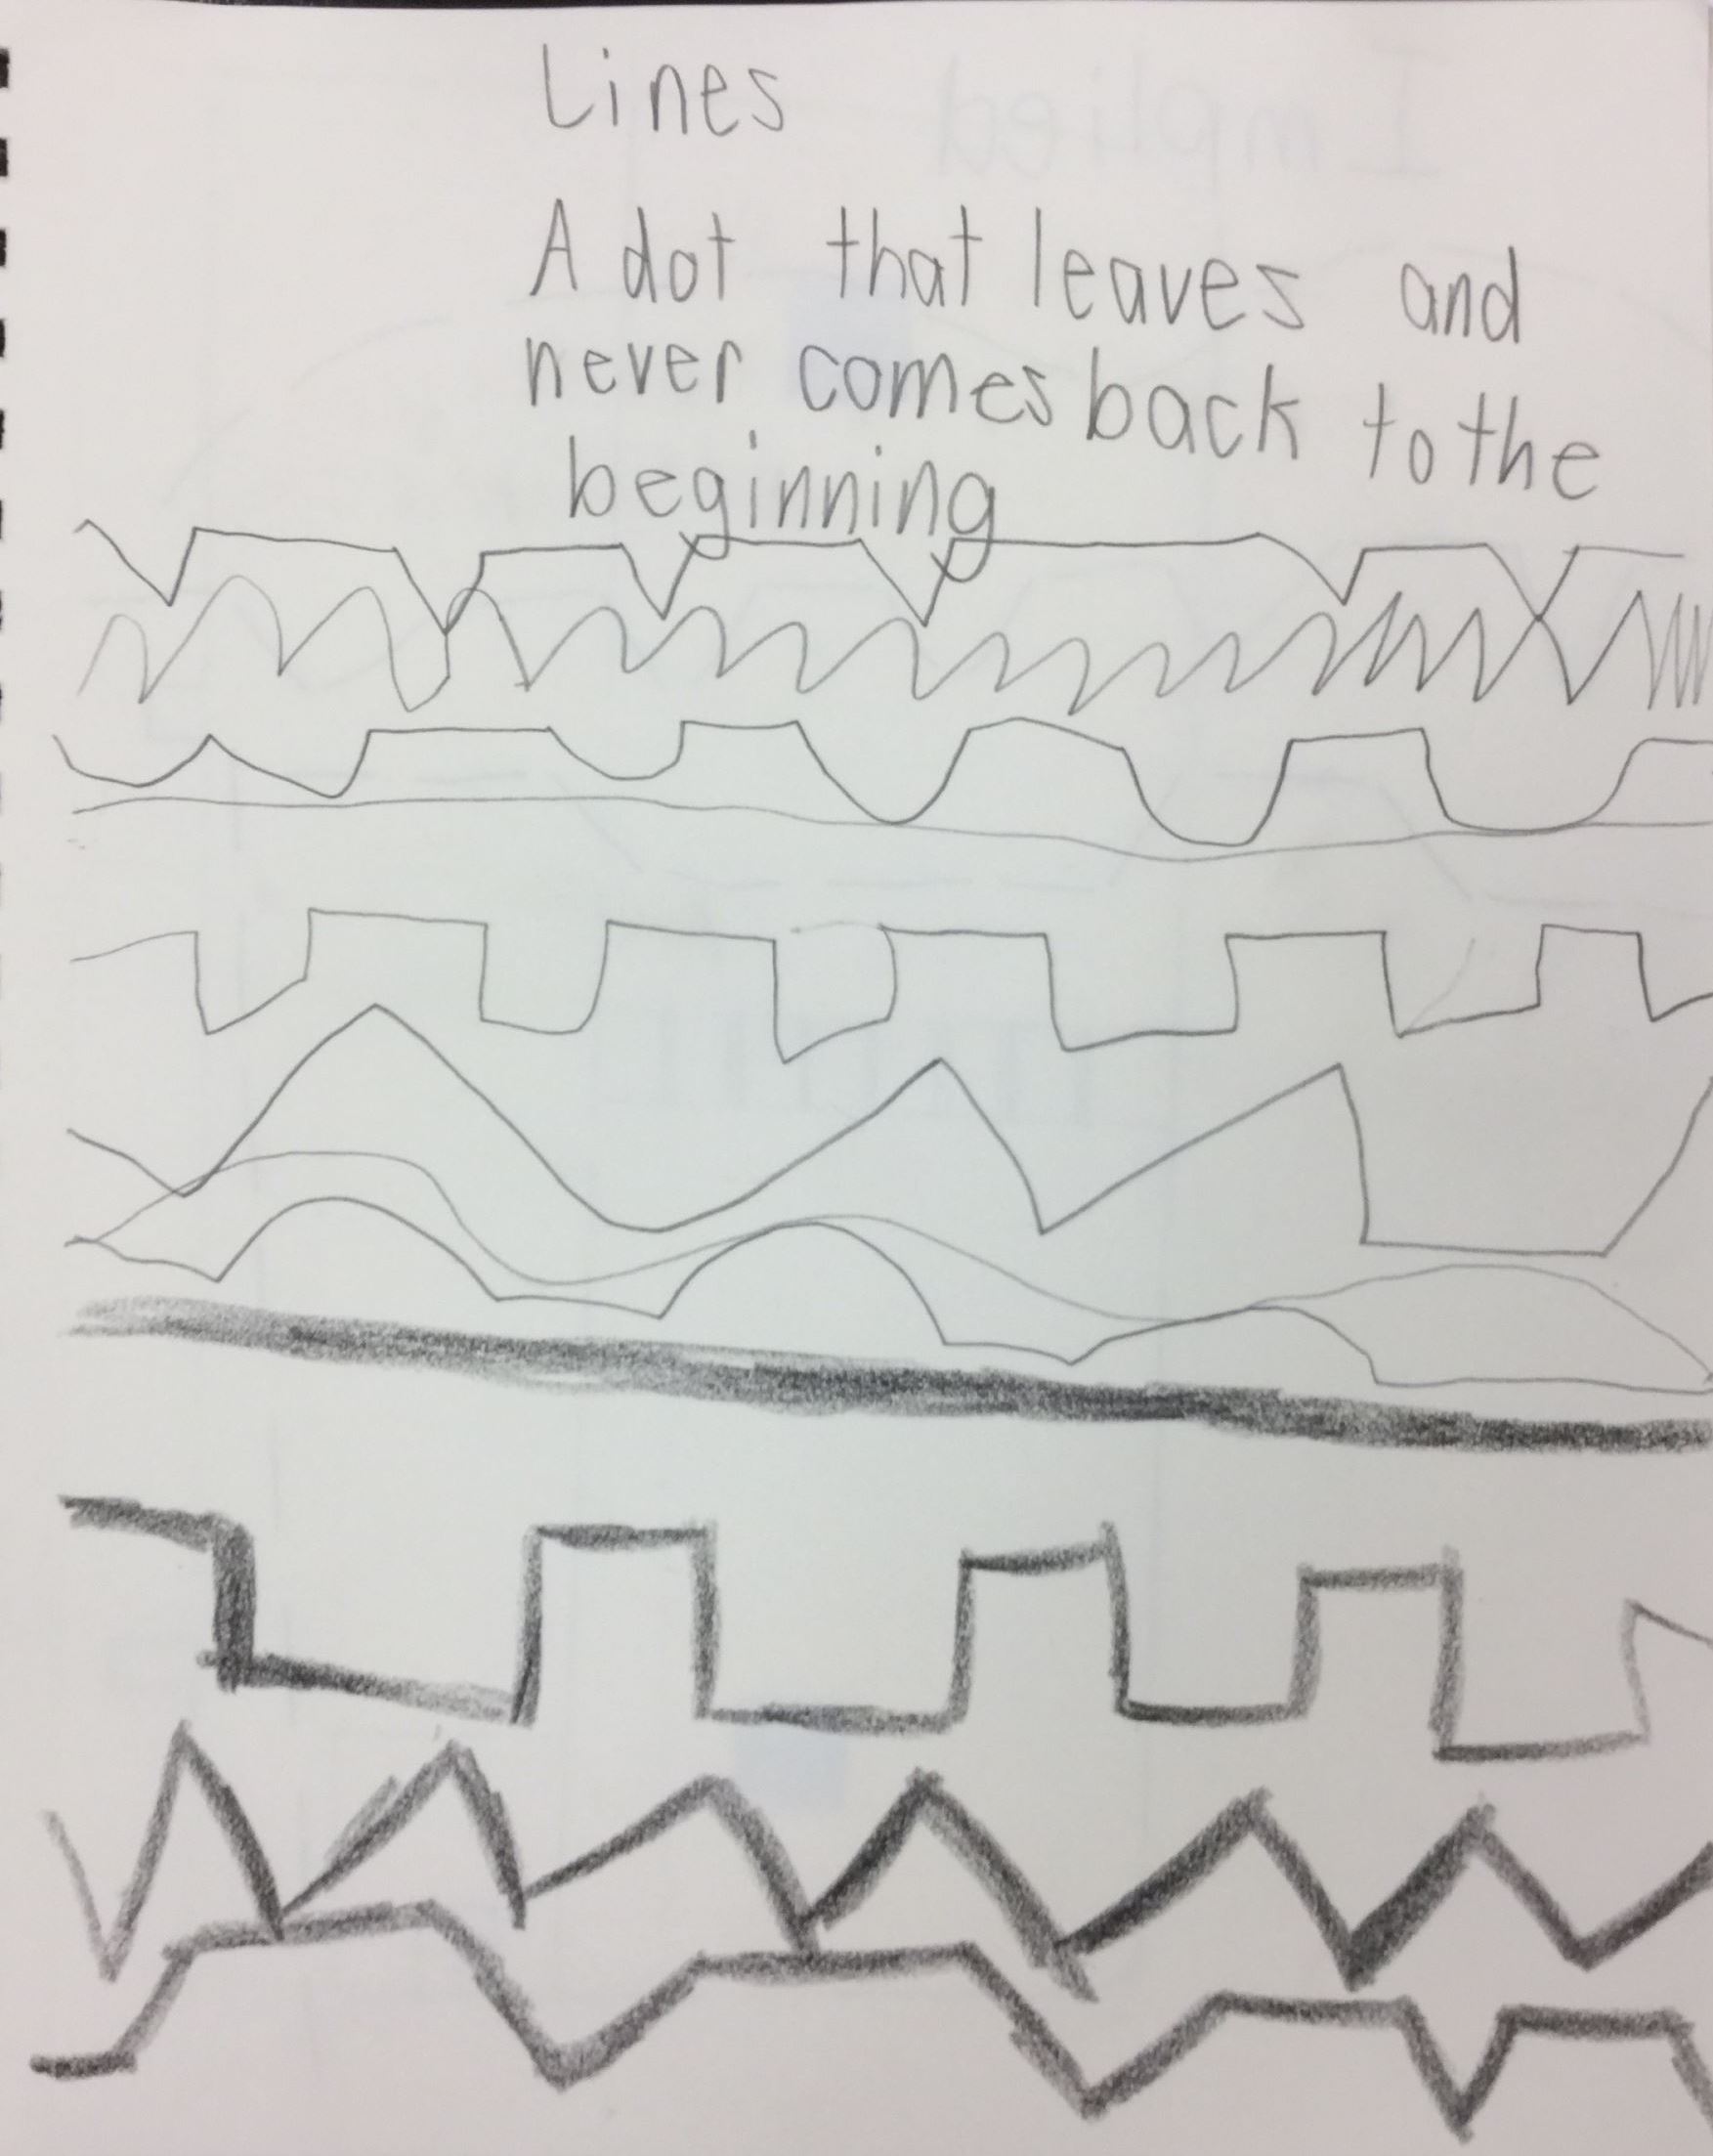 Lines
Implied
A dot that leaves and
never comes back to the
beginning